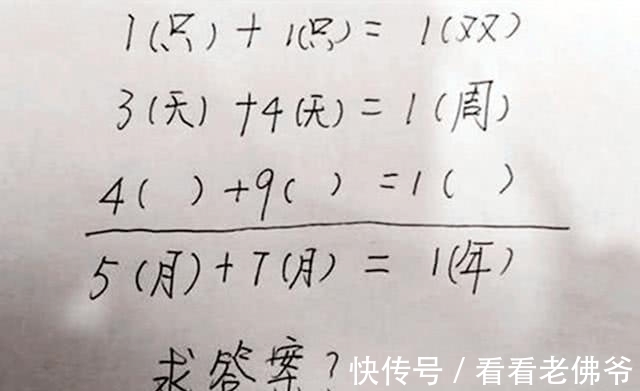 1(只)+1(只)=1(双)
3(天)+4(天)=1(周)
4( )+9( )=1( )
5(月)+7(月)=1(年)
求答案?
快传号/看看老佛爷